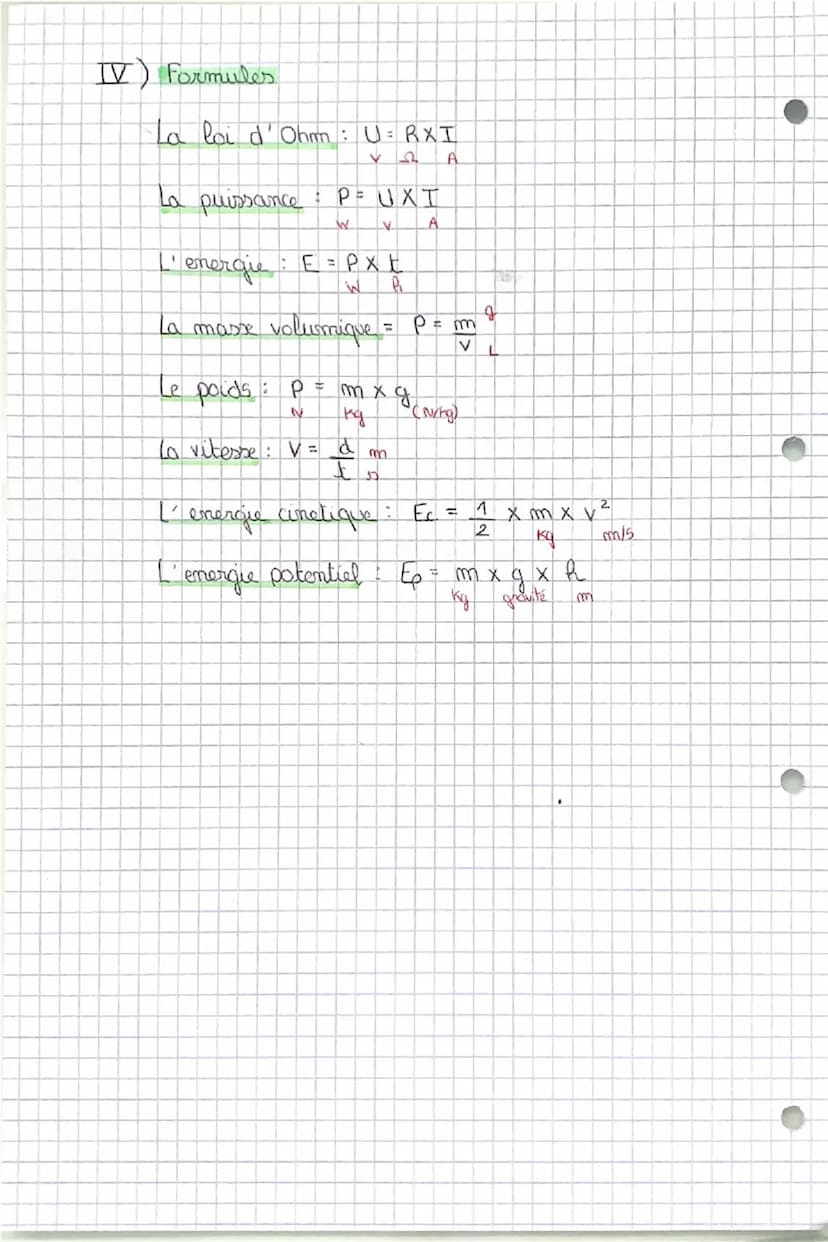 IV) Formules
La loi d'Ohm : U = R X I
V Ω A
La puissance : P = U X I
W V A
L'energie : E = P X t
W h
La masse volumique = P = m/v g L
Le poids : P = m x g
N kg (N/kg)
La vitesse : V = d/t m s
L'energie cinetique : Ec = 1/2 x m x v²
kg m/s
L'energie potentiel : Ep = m x g x h
kg gravité m